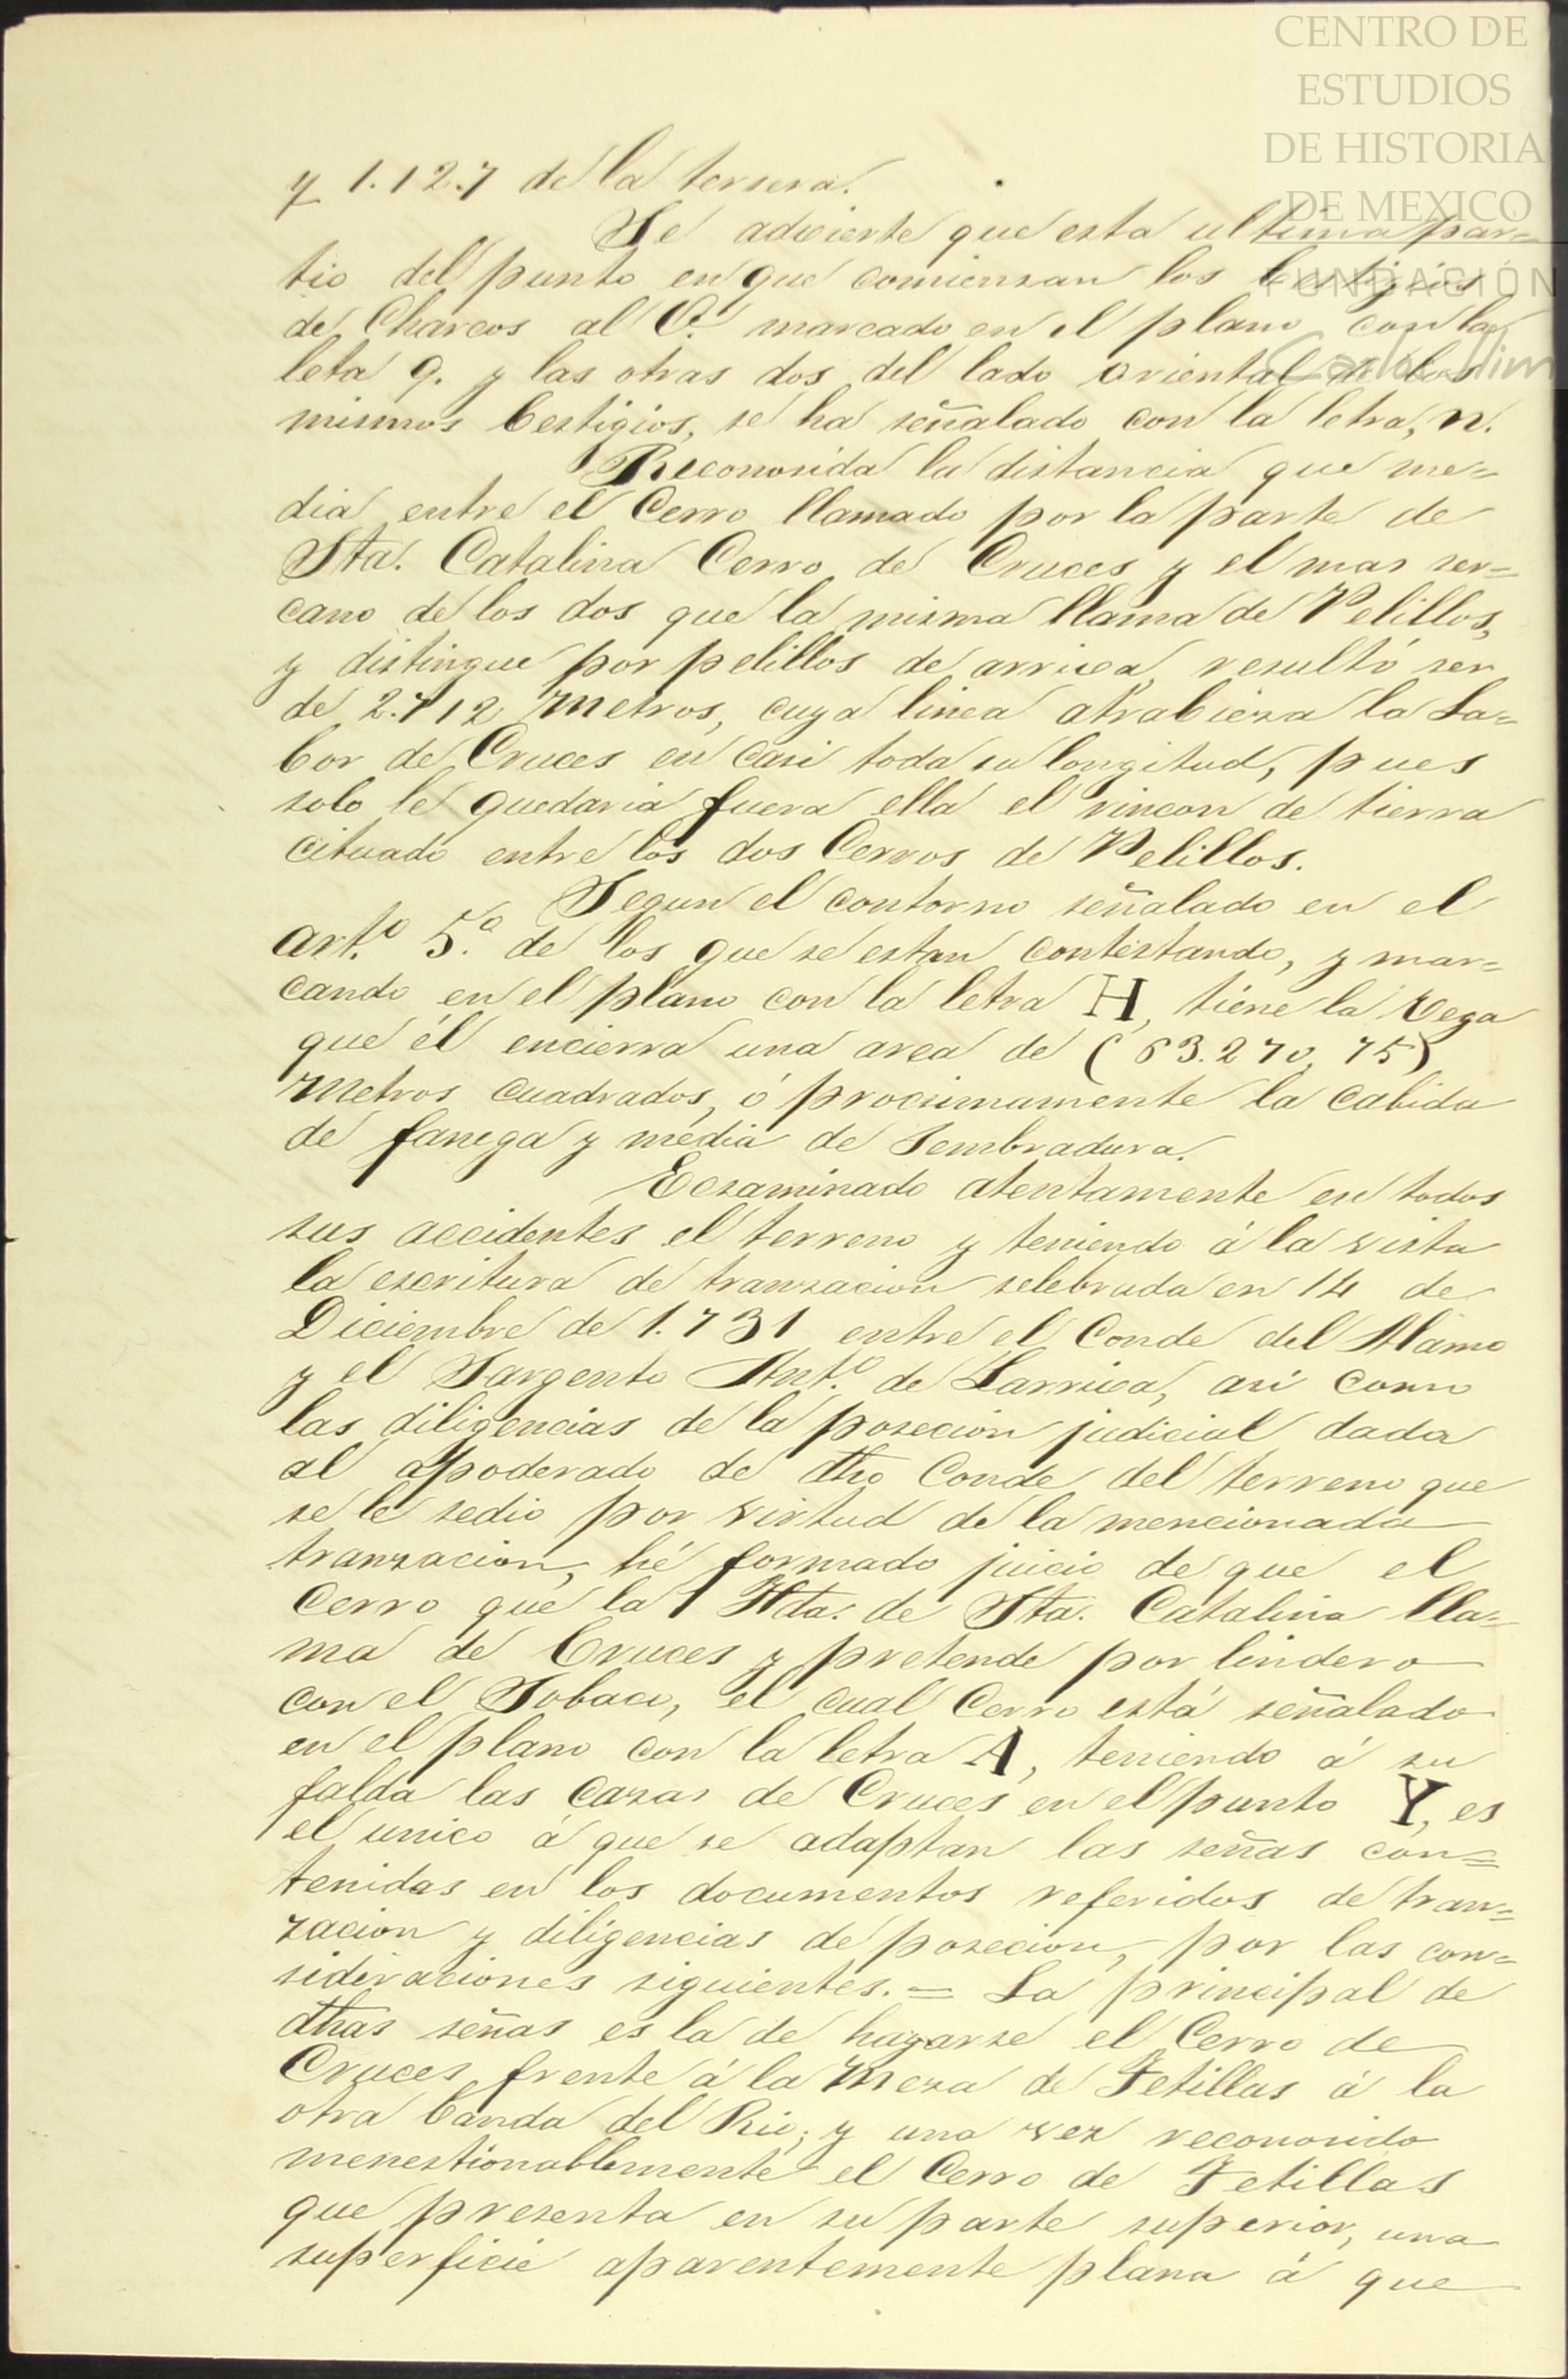 CENTRO DE
ESTUDIOS
DE HISTORIA
DE MEXICO
FUNDACIÓN
Carlos Slim
y 1.127 de la tersera.
Se advierte que esta ultima par=
tio del punto en que comiensan los bestigios
de Charcos al O. marcado en el plano con la
leta q. y las otras dos del lado oriental de los
mismos bestigios, se ha señalado con la letra, n.
Reconosida la distancia que me=
dia entre el Cerro llamado por la parte de
Sta. Catalina Cerro de Cruces y el mas ser=
cano de los dos que la misma llama de Pelillos,
y distingue por pelillos de arriva, resultó ser
de 2.712 Metros, cuya linea atrabieza la La=
bor de Cruces en casi toda su longitud, pues
solo le quedaria fuera ella el rincon de tierra
cituado entre los dos Cerros de Pelillos.
Segun el contorno señalado en el
art.º 5.º de los que se estan contestando, y mar=
cando en el plano con la letra H, tiene la vega
que él encierra una area de (63.270,75)
Metros cuadrados, ó procsimamente la cabida
de fanega y media de sembradura.
Ecsaminado atentamente en todos
sus accidentes el terreno y teniendo á la vista
la escritura de tranzacion selebrada en 14 de
Diciembre de 1.731 entre el Conde del Alamo
y el Sargento Ant.º de Larriva, asi como
las diligencias de la posecion judicial dada
al apoderado de dho Conde del terreno que
se le sedio por virtud de la mencionada
tranzacion, hé formado juicio de que el
Cerro que la Hda. de Sta. Catalina lla=
ma de Cruces y pretende por lindero
con el Sobaco, el cual Cerro está señalado
en el plano con la letra A, teniendo á su
falda las Cazas de Cruces en el punto Y, es
el unico á que se adaptan las señas con=
tenidas en los documentos referidos de tran=
zacion y diligencias de posecion, por las con=
sideraciones siguientes. = La principal de
dhas señas es la de hayarse el Cerro de
Cruces frente á la Meza de Tetillas á la
otra banda del Rio; y una vez reconosido
menestionablemente el Cerro de Tetillas
que presenta en su parte superior, una
superficie aparentemente plana á que